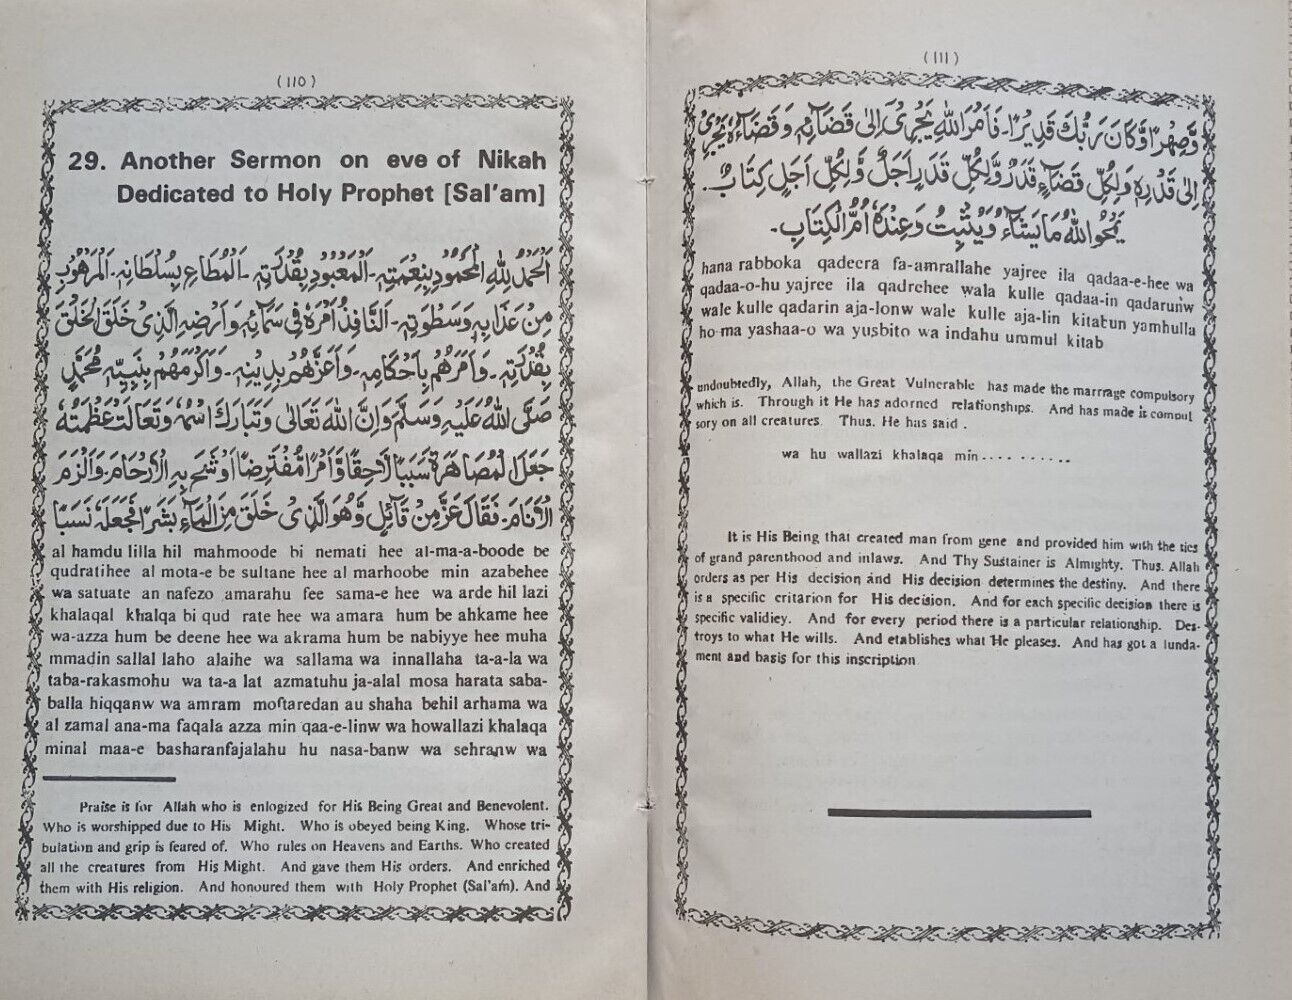 (110)
29. Another Sermon on eve of Nikah
Dedicated to Holy Prophet [Sal'am]
اَلْحَمْدُ لِلّٰهِ الْمَحْمُوْدِ بِنِعْمَتِهٖ۔ اَلْمَعْبُوْدِ بِقُدْرَتِهٖ۔ اَلْمُطَاعِ بِسُلْطَانِهٖ۔ اَلْمَرْهُوْبِ
مِنْ عَذَابِهٖ وَسَطْوَتِهٖ۔ اَلنَّافِذِ اَمْرُهٗ فِیْ سَمَآئِهٖ وَاَرْضِهِ الَّذِیْ خَلَقَ الْخَلْقَ
بِقُدْرَتِهٖ۔ وَاَمَرَهُمْ بِاَحْكَامِهٖ۔ وَاَعَزَّهُمْ بِدِيْنِهٖ۔ وَاَكْرَمَهُمْ بِنَبِيِّهٖ مُحَمَّدٍ
صَلَّی اللّٰهُ عَلَيْهِ وَسَلَّمَ وَاِنَّ اللّٰهَ تَعَالٰی وَتَبَارَكَ اسْمُهٗ وَتَعَالَتْ عَظْمَتُهٗ
جَعَلَ الْمُصَاهَرَةَ سَبَبًا لَاحِقًا وَّاَمْرًا مُّفْتَرِضًا اَوْشَحَ بِهِ الْاَرْحَامَ۔ وَالْزَمَ
الْاَنَامَ۔ فَقَالَ عَزَّ مِنْ قَآئِلٍ وَّهُوَ الَّذِیْ خَلَقَ مِنَ الْمَآءِ بَشَرًا فَجَعَلَهٗ نَسَبًا
al hamdu lilla hil mahmoode bi nemati hee al-ma-a-boode be
qudratihee al mota-e be sultane hee al marhoobe min azabehee
wa satuate an nafezo amarahu fee sama-e hee wa arde hil lazi
khalaqal khalqa bi qud rate hee wa amara hum be ahkame hee
wa-azza hum be deene hee wa akrama hum be nabiyye hee muha
mmadin sallal laho alaihe wa sallama wa innallaha ta-a-la wa
taba-rakasmohu wa ta-a lat azmatuhu ja-alal mosa harata saba-
balla hiqqanw wa amram moftaredan au shaha behil arhama wa
al zamal ana-ma faqala azza min qaa-e-linw wa howallazi khalaqa
minal maa-e basharanfajalahu hu nasa-banw wa sehranw wa
Praise is for Allah who is enlogized for His Being Great and Benevolent.
Who is worshipped due to His Might. Who is obeyed being King. Whose tri-
bulation and grip is feared of. Who rules on Heavens and Earths. Who created
all the creatures from His Might. And gave them His orders. And enriched
them with His religion. And honoured them with Holy Prophet (Sal'am). And
(111)
وَّصِهْرًا وَّكَانَ رَبُّكَ قَدِيْرًا۔ فَاَمْرُ اللّٰهِ يَجْرِیْ اِلٰی قَضَآئِهٖ وَقَضَآءُهٗ يَجْرِیْ
اِلٰی قَدْرِهٖ وَلِكُلِّ قَضَآءٍ قَدَرٌ وَّلِكُلِّ قَدَرٍ اَجَلٌ وَّلِكُلِّ اَجَلٍ كِتَابٌ۔
يَمْحُو اللّٰهُ مَا يَشَآءُ وَيُثْبِتُ وَعِنْدَهٗ اُمُّ الْكِتَابِ۔
hana rabboka qadeera fa-amrallahe yajree ila qadaa-e-hee wa
qadaa-o-hu yajree ila qadrehee wala kulle qadaa-in qadarunw
wale kulle qadarin aja-lonw wale kulle aja-lin kitabun yamhulla
ho-ma yashaa-o wa yusbito wa indahu ummul kitab
undoubtedly, Allah, the Great Vulnerable has made the marrrage compulsory
which is. Through it He has adorned relationships. And has made it compul
sory on all creatures. Thus. He has said .
wa hu wallazi khalaqa min..........
It is His Being that created man from gene and provided him with the ties
of grand parenthood and inlaws. And Thy Sustainer is Almighty. Thus. Allah
orders as per His decision and His decision determines the destiny. And there
is a specific critarion for His decision. And for each specific decision there is
specific validiey. And for every period there is a particular relationship. Des-
troys to what He wills. And etablishes what He pleases. And has got a funda-
ment and basis for this inscription